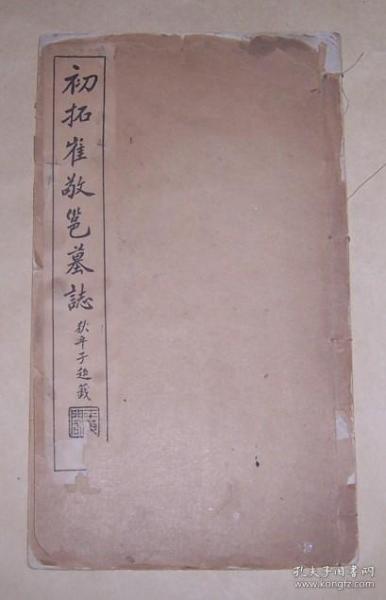 初拓崔敬邕墓誌
秋平子題籤
孔夫子旧书网